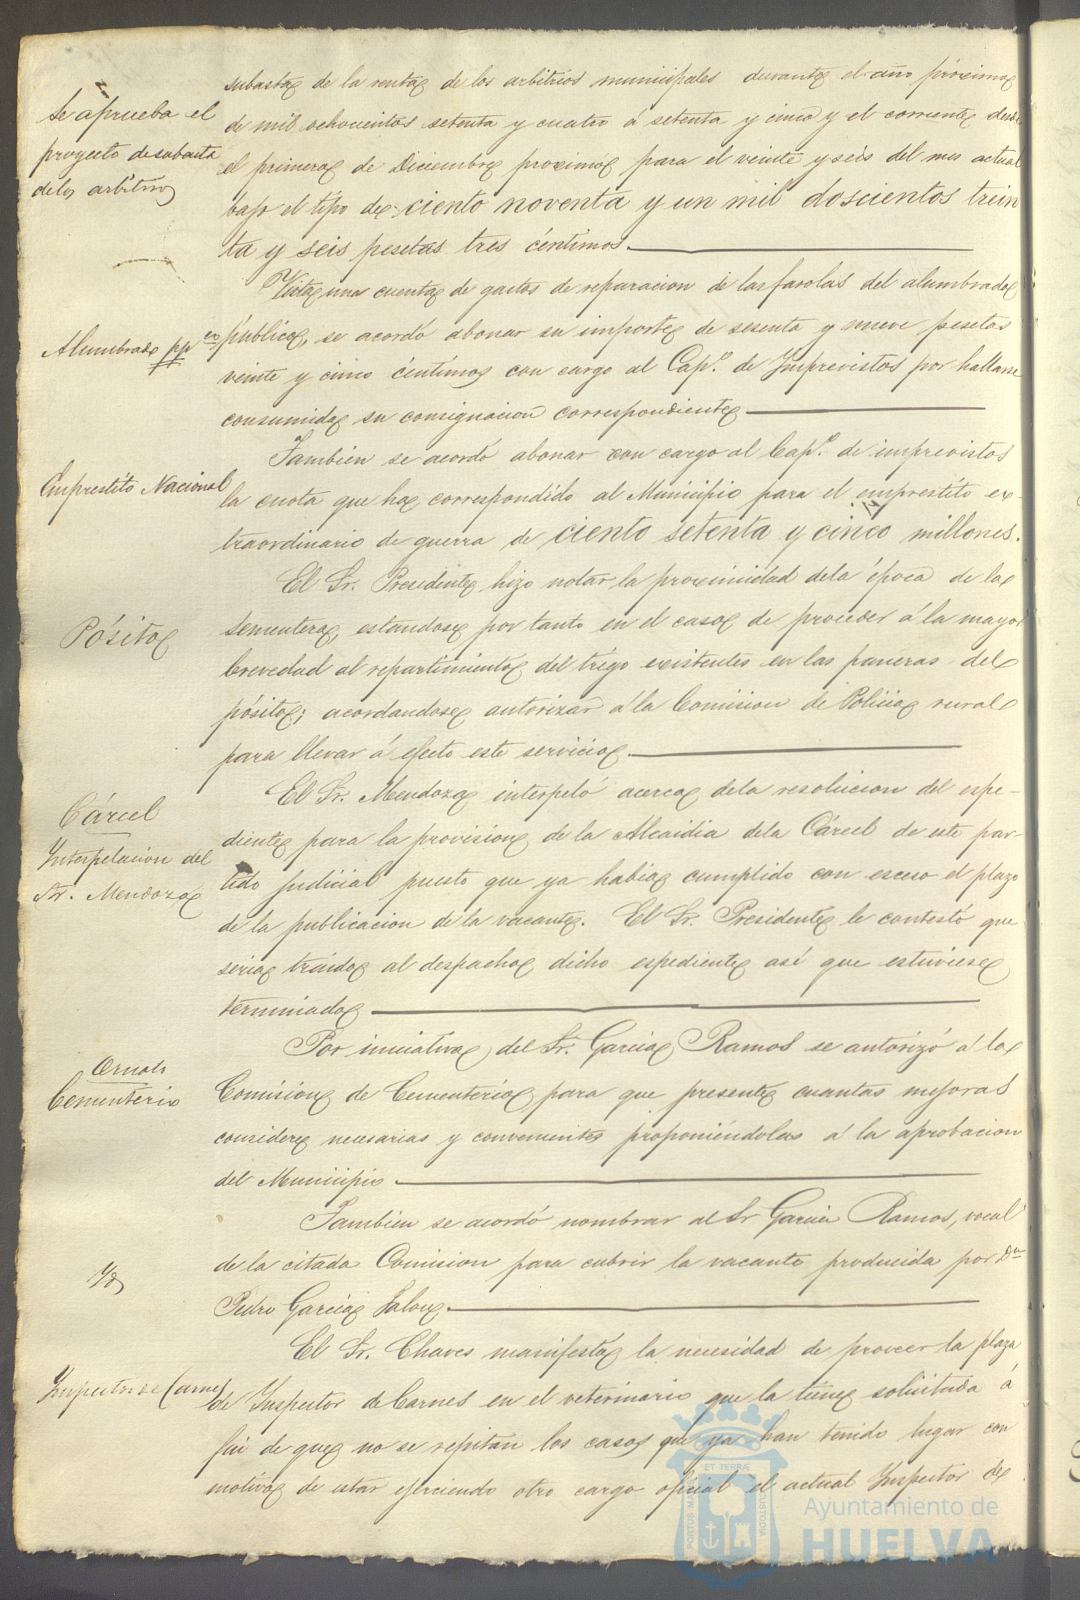 subasta de la renta de los arbitrios municipales durante el año próximo
Se aprueba el
proyecto de subasta
de los arbitrios
de mil ochocientos setenta y cuatro á setenta y cinco y el corriente desde
el primero de Diciembre proximo para el veinte y seis del mes actual
bajo el tipo de ciento noventa y un mil doscientos trein
ta y seis pesetas tres céntimos
Alumbrado pp co
Vista una cuenta de gastos de reparacion de las farolas del alumbrado
público, se acordó abonar su importe de sesenta y nueve pesetas
veinte y cinco céntimos con cargo al Capº. de Imprevistos por hallarse
consumida su consignacion correspondiente
Empréstito Nacional
Tambien se acordó abonar con cargo al Capº. de imprevistos
la cuota que ha correspondido al Municipio para el empréstito ex-
traordinario de guerra de ciento setenta y cinco millones.
Pósito
El Sr. Presidente hizo notar la proximidad dela época de la
sementera, estandose por tanto en el caso de proceder á la mayor
brevedad al repartimiento del trigo existentes en las paneras del
pósito; acordandose autorizar á la Comision de Policia rural
para llevar á efecto este servicio
Cárcel
Interpelacion del
Sr. Mendoza
El Sr. Mendoza interpeló acerca dela resolucion del espe-
diente para la provision de la Alcaidia dela Cárcel de este par-
tido judicial puesto que ya habia cumplido con esceso el plazo
de la publicacion de la vacante. El Sr. Presidente le contestó que
seria traido al despacho dicho espediente así que estuviese
terminado
Ornato
Cementerio
Por iniciativa del Sr. Garcia Ramos se autorizó á la
Comisión de Cementerio para que presente cuantas mejoras
considere necesarias y convenientes proponiéndolas á la aprobacion
del Municipio
Yd
Tambien se acordó nombrar al Sr Garcia Ramos, vocal
de la citada Comision para cubrir la vacante producida por Dn
Pedro Garcia Jalon
Inspector de Carnes
El Sr. Chaves manifestó la necesidad de proveer la plaza
de Inspector de Carnes en el veterinario que la tiene solicitada á
fin de que no se repitan los casos que ya han tenido lugar con
motivo de estar ejerciendo otro cargo oficial el actual Inspector de
PORTUS MARIS ET TERRÆ CUSTODIA
Ayuntamiento de
HUELVA